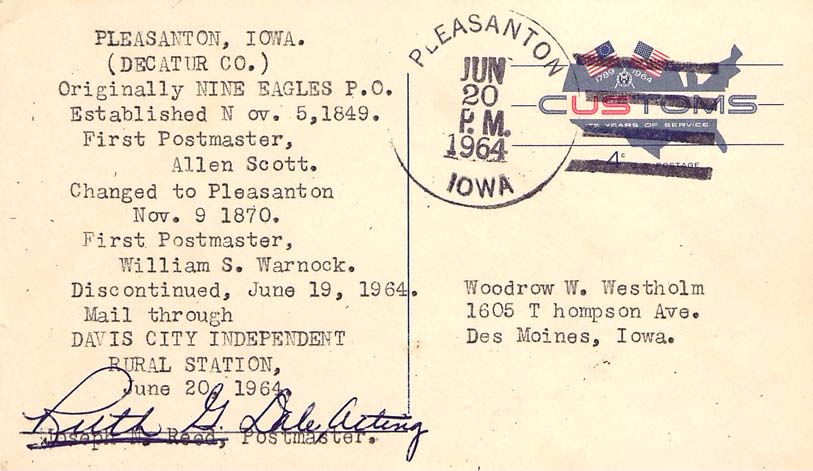 PLEASANTON, IOWA.
(DECATUR CO.)
Originally NINE EAGLES P.O.
Established N ov. 5,1849.
First Postmaster,
Allen Scott.
Changed to Pleasanton
Nov. 9 1870.
First Postmaster,
William S. Warnock.
Discontinued, June 19, 1964.
Mail through
DAVIS CITY INDEPENDENT
RURAL STATION,
June 20, 1964
Ruth G. Dale, Acting
Joseph M. Reed, Postmaster.
PLEASANTON
JUN
20
P.M.
1964
IOWA
1789 1964
CUSTOMS
175 YEARS OF SERVICE
4c U.S. POSTAGE
Woodrow W. Westholm
1605 T hompson Ave.
Des Moines, Iowa.